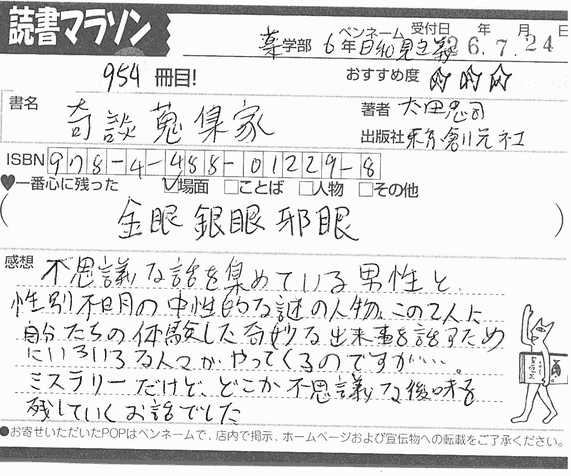 読書マラソン
ペンネーム 受付日 年 月 日
薬学部 6年 日和見主義 26.7.24
954 冊目!
おすすめ度 ☆ ☆ ☆
書名 奇談蒐集家
著者 太田忠司
出版社 東京創元社
ISBN 978-4-488-01229-8
♥一番心に残った ☑場面 □ことば □人物 □その他
( 金眼銀眼邪眼 )
感想 不思議な話を集めている男性と、
性別不明の中性的な謎の人物、この2人に
自分たちの体験した奇妙な出来事を話すため
にいろいろな人々がやってくるのですが…。
ミステリーだけど、どこか不思議な後味を
残していくお話でした
●お寄せいただいたPOPはペンネームで、店内で掲示、ホームページおよび宣伝物への転載をご了承ください。